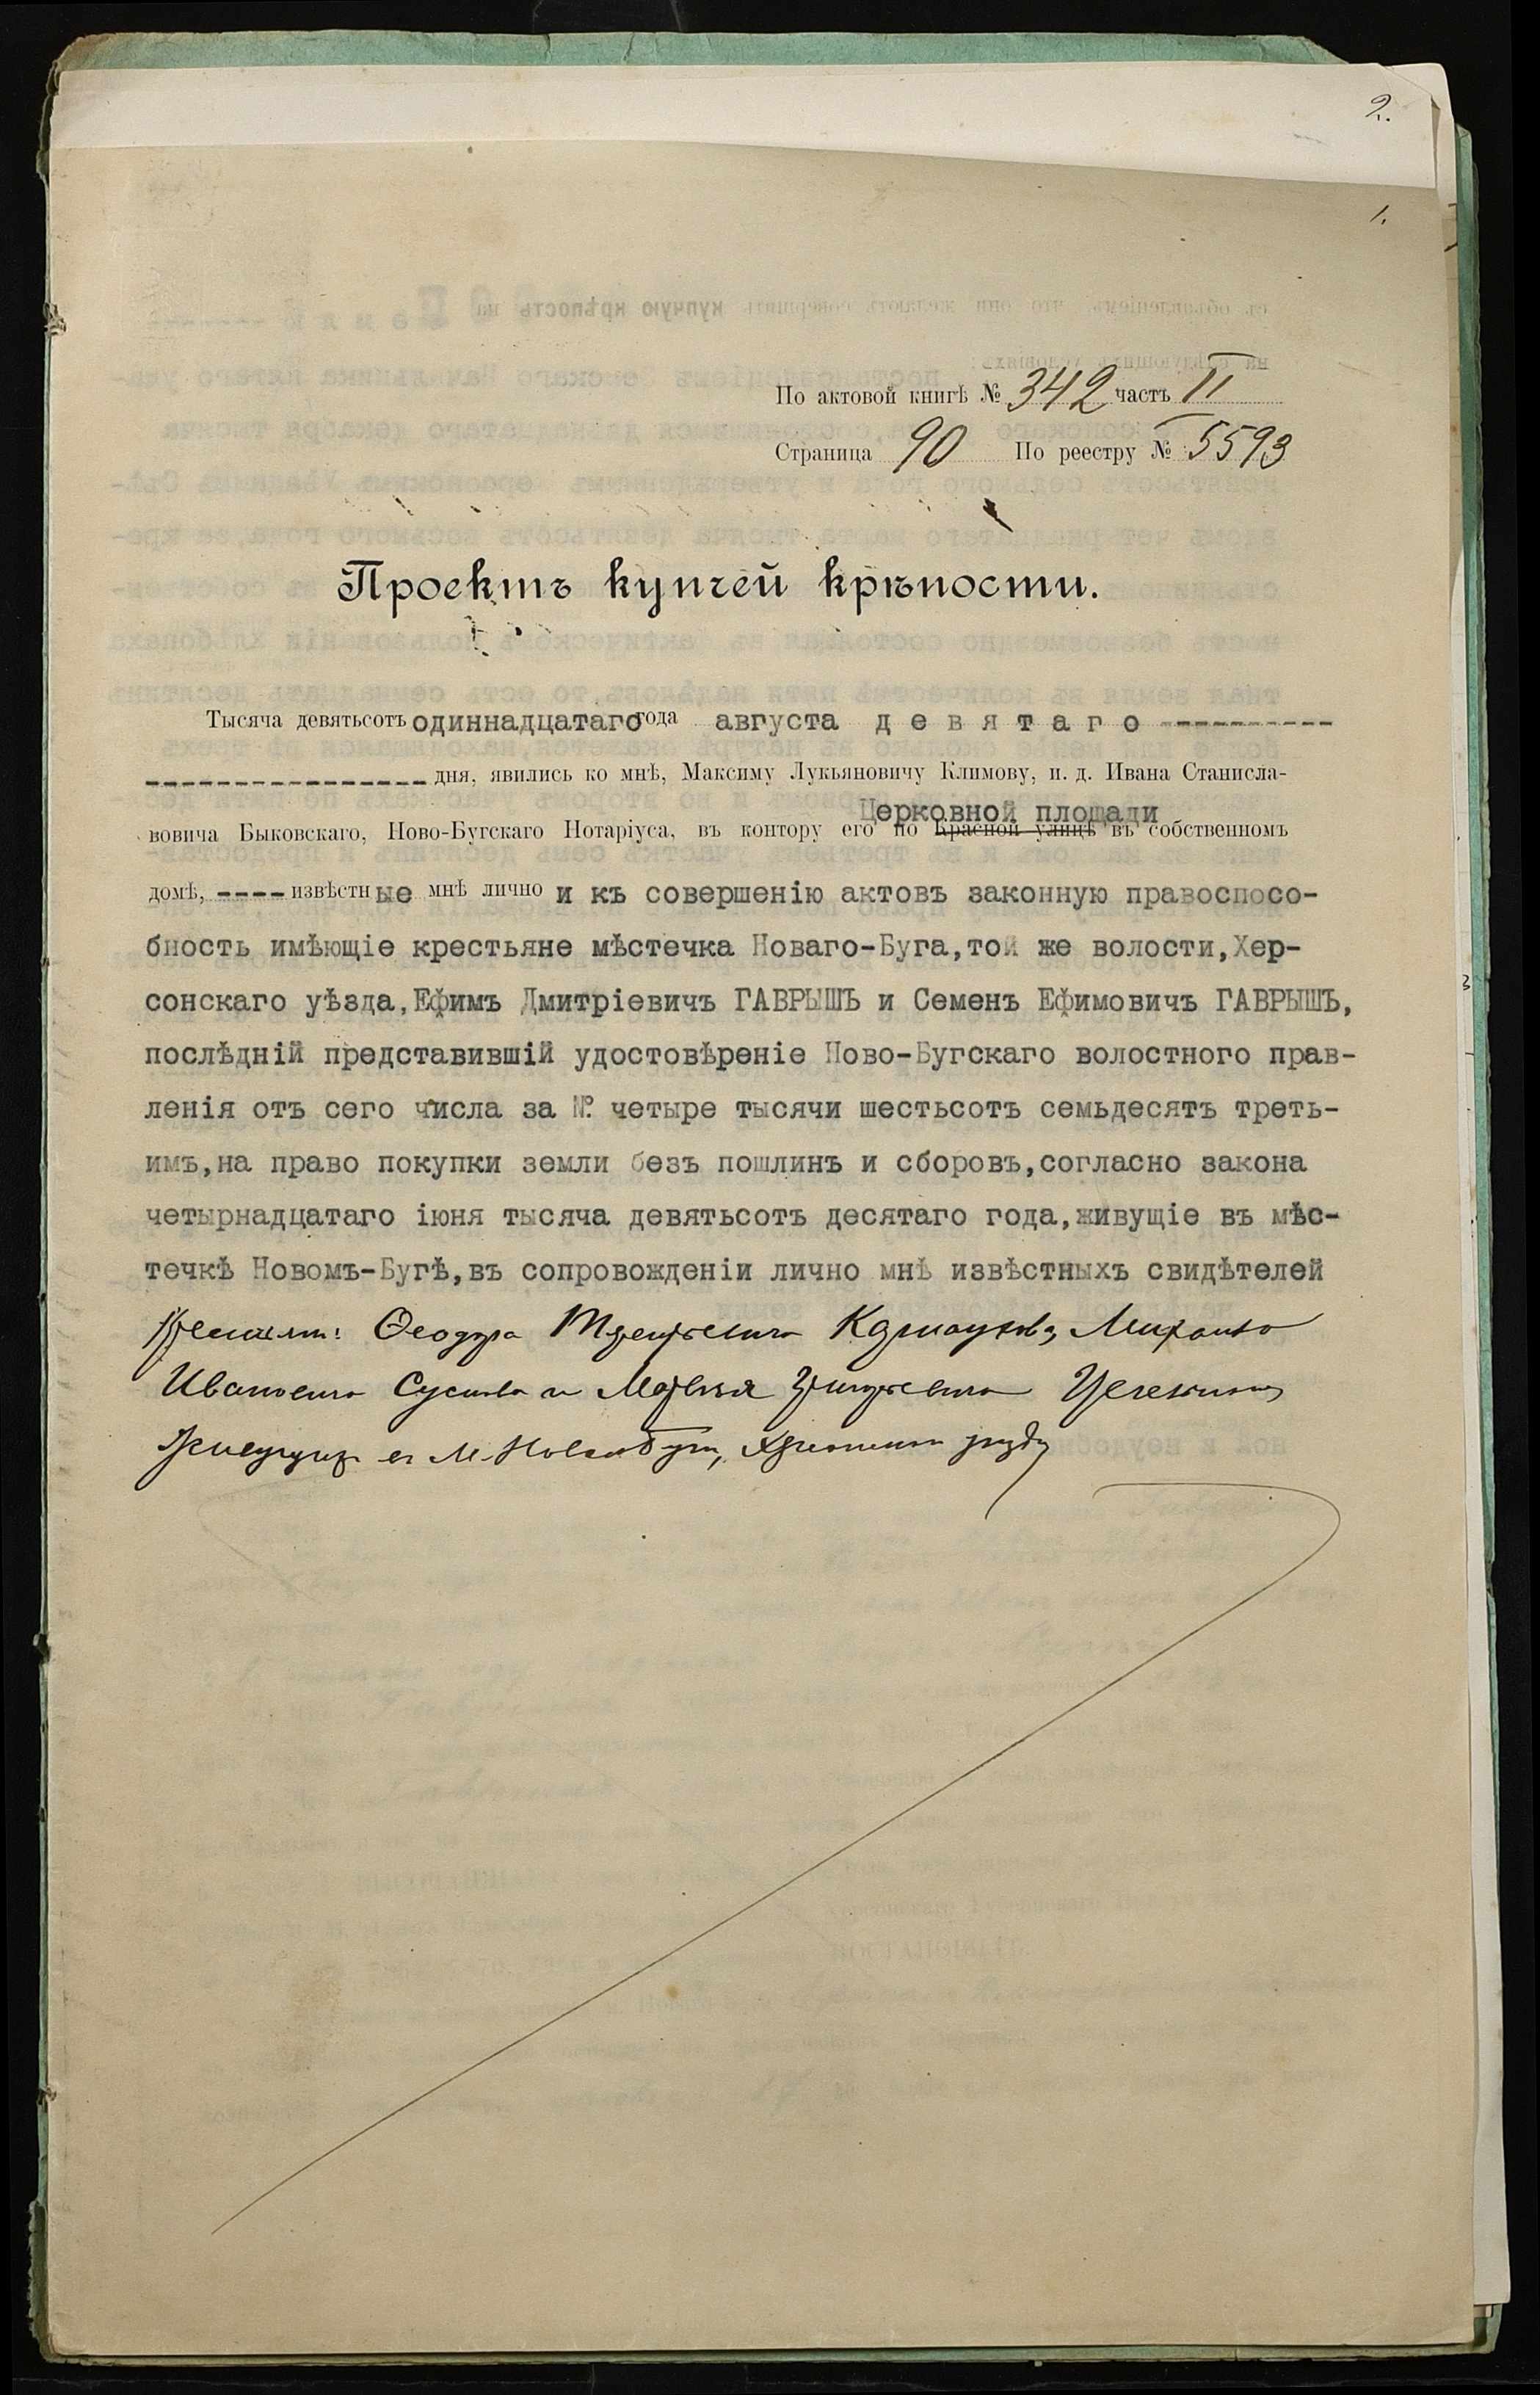 2.
1.
По актовой книгѣ № 342 часть II
Страница 90 По реестру № 5593
Проектъ купчей крѣпости.
Тысяча девятьсотъ одиннадцатаго года августа д е в я т а г о ----------
---------------- дня, явились ко мнѣ, Максиму Лукьяновичу Климову, и. д. Ивана Станисла-
Церковной площади
вовича Быковскаго, Ново-Бугскаго Нотаріуса, въ контору его по Красной улицѣ въ собственномъ
домѣ, ---- извѣстные мнѣ лично и къ совершенію актовъ законную правоспосо-
бность имѣющіе крестьяне мѣстечка Новаго-Буга,той же волости,Хер-
сонскаго уѣзда,Ефимъ Дмитріевичъ ГАВРЫШЪ и Семенъ Ефимовичъ ГАВРЫШЪ,
послѣдній представившій удостовѣреніе Ново-Бугскаго волостного прав-
ленія отъ сего числа за № четыре тысячи шестьсотъ семьдесятъ треть-
имъ,на право покупки земли безъ пошлинъ и сборовъ,согласно закона
четырнадцатаго іюня тысяча девятьсотъ десятаго года,живущіе въ мѣс-
течкѣ Новомъ-Бугѣ,въ сопровожденіи лично мнѣ извѣстныхъ свидѣтелей
Ѳеодора Михаила
Ивановича и
въ М.